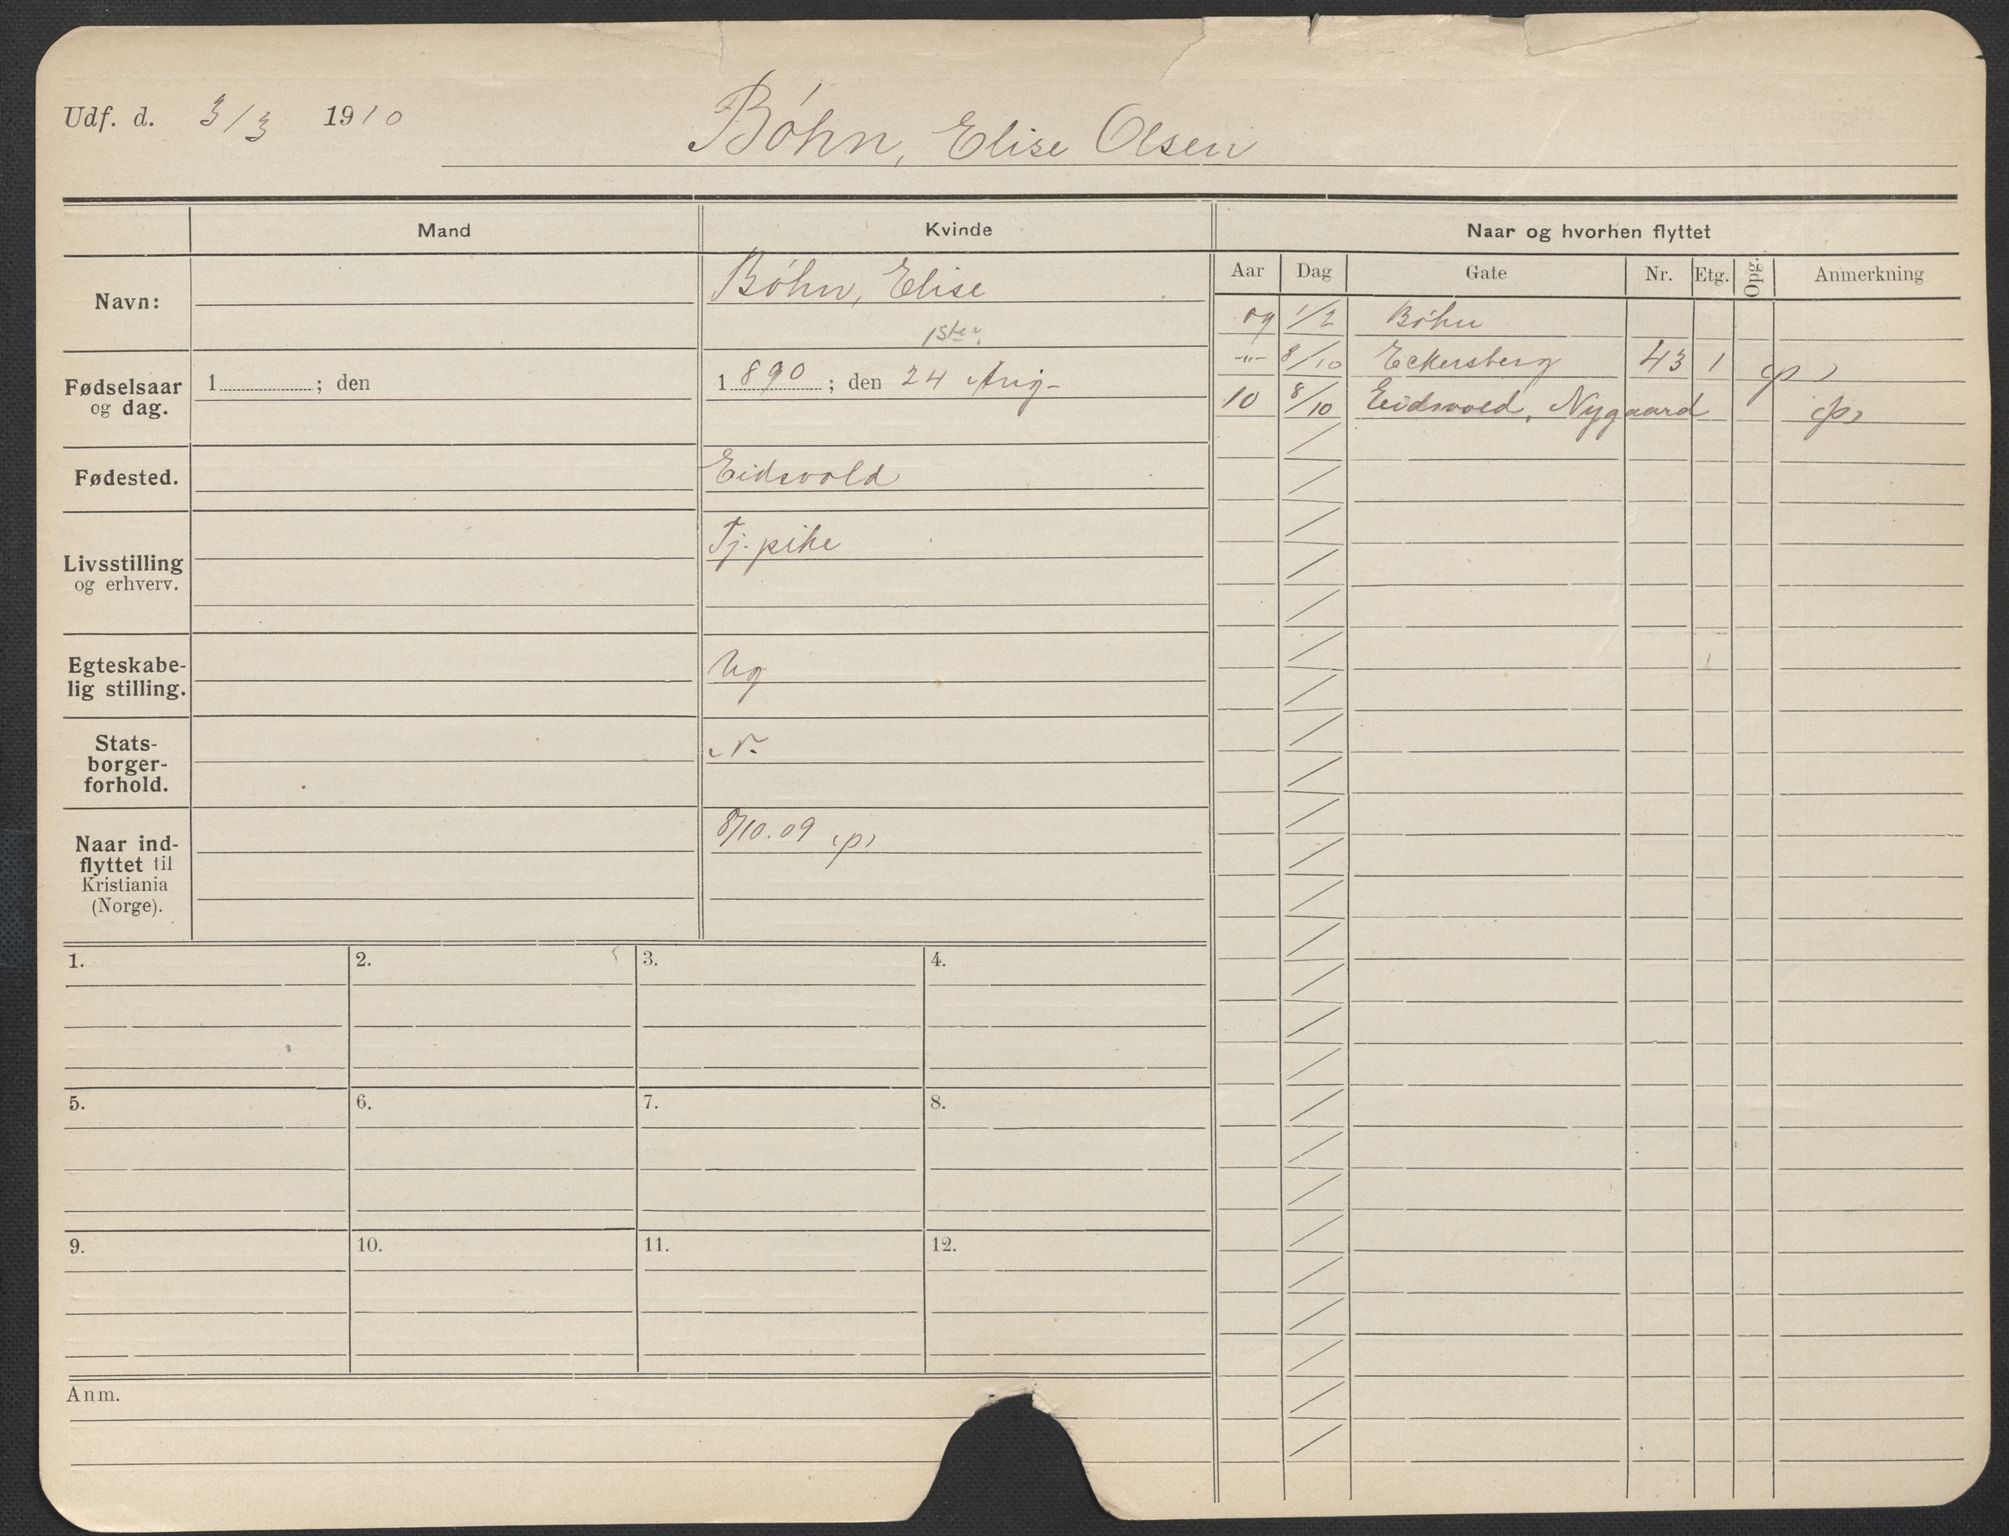 Udf. d. 3/3 1910
Bøhn, Elise Olsen
Mand Kvinde Naar og hvorhen flyttet
Aar Dag Gate Nr. Etg. Opg. Anmerkning
Navn: Bøhn, Elise
Fødselsaar og dag. 1 ; den 1890 ; den 24 Aug-
Fødested. Eidsvold
Livsstilling og erhverv. Tj. pike
Egteskabe-
lig stilling. Ug
Stats-
borger-
forhold. N.
Naar ind-
flyttet til
Kristiania
(Norge). 8/10.09 (p)
09 1/2 Bøhn
-"- 8/10 Eckersberg 43 1 (p)
10 8/10 Eidsvold, Nygaard (p)
1. 2. 3. 4.
5. 6. 7. 8.
9. 10. 11. 12.
Anm.